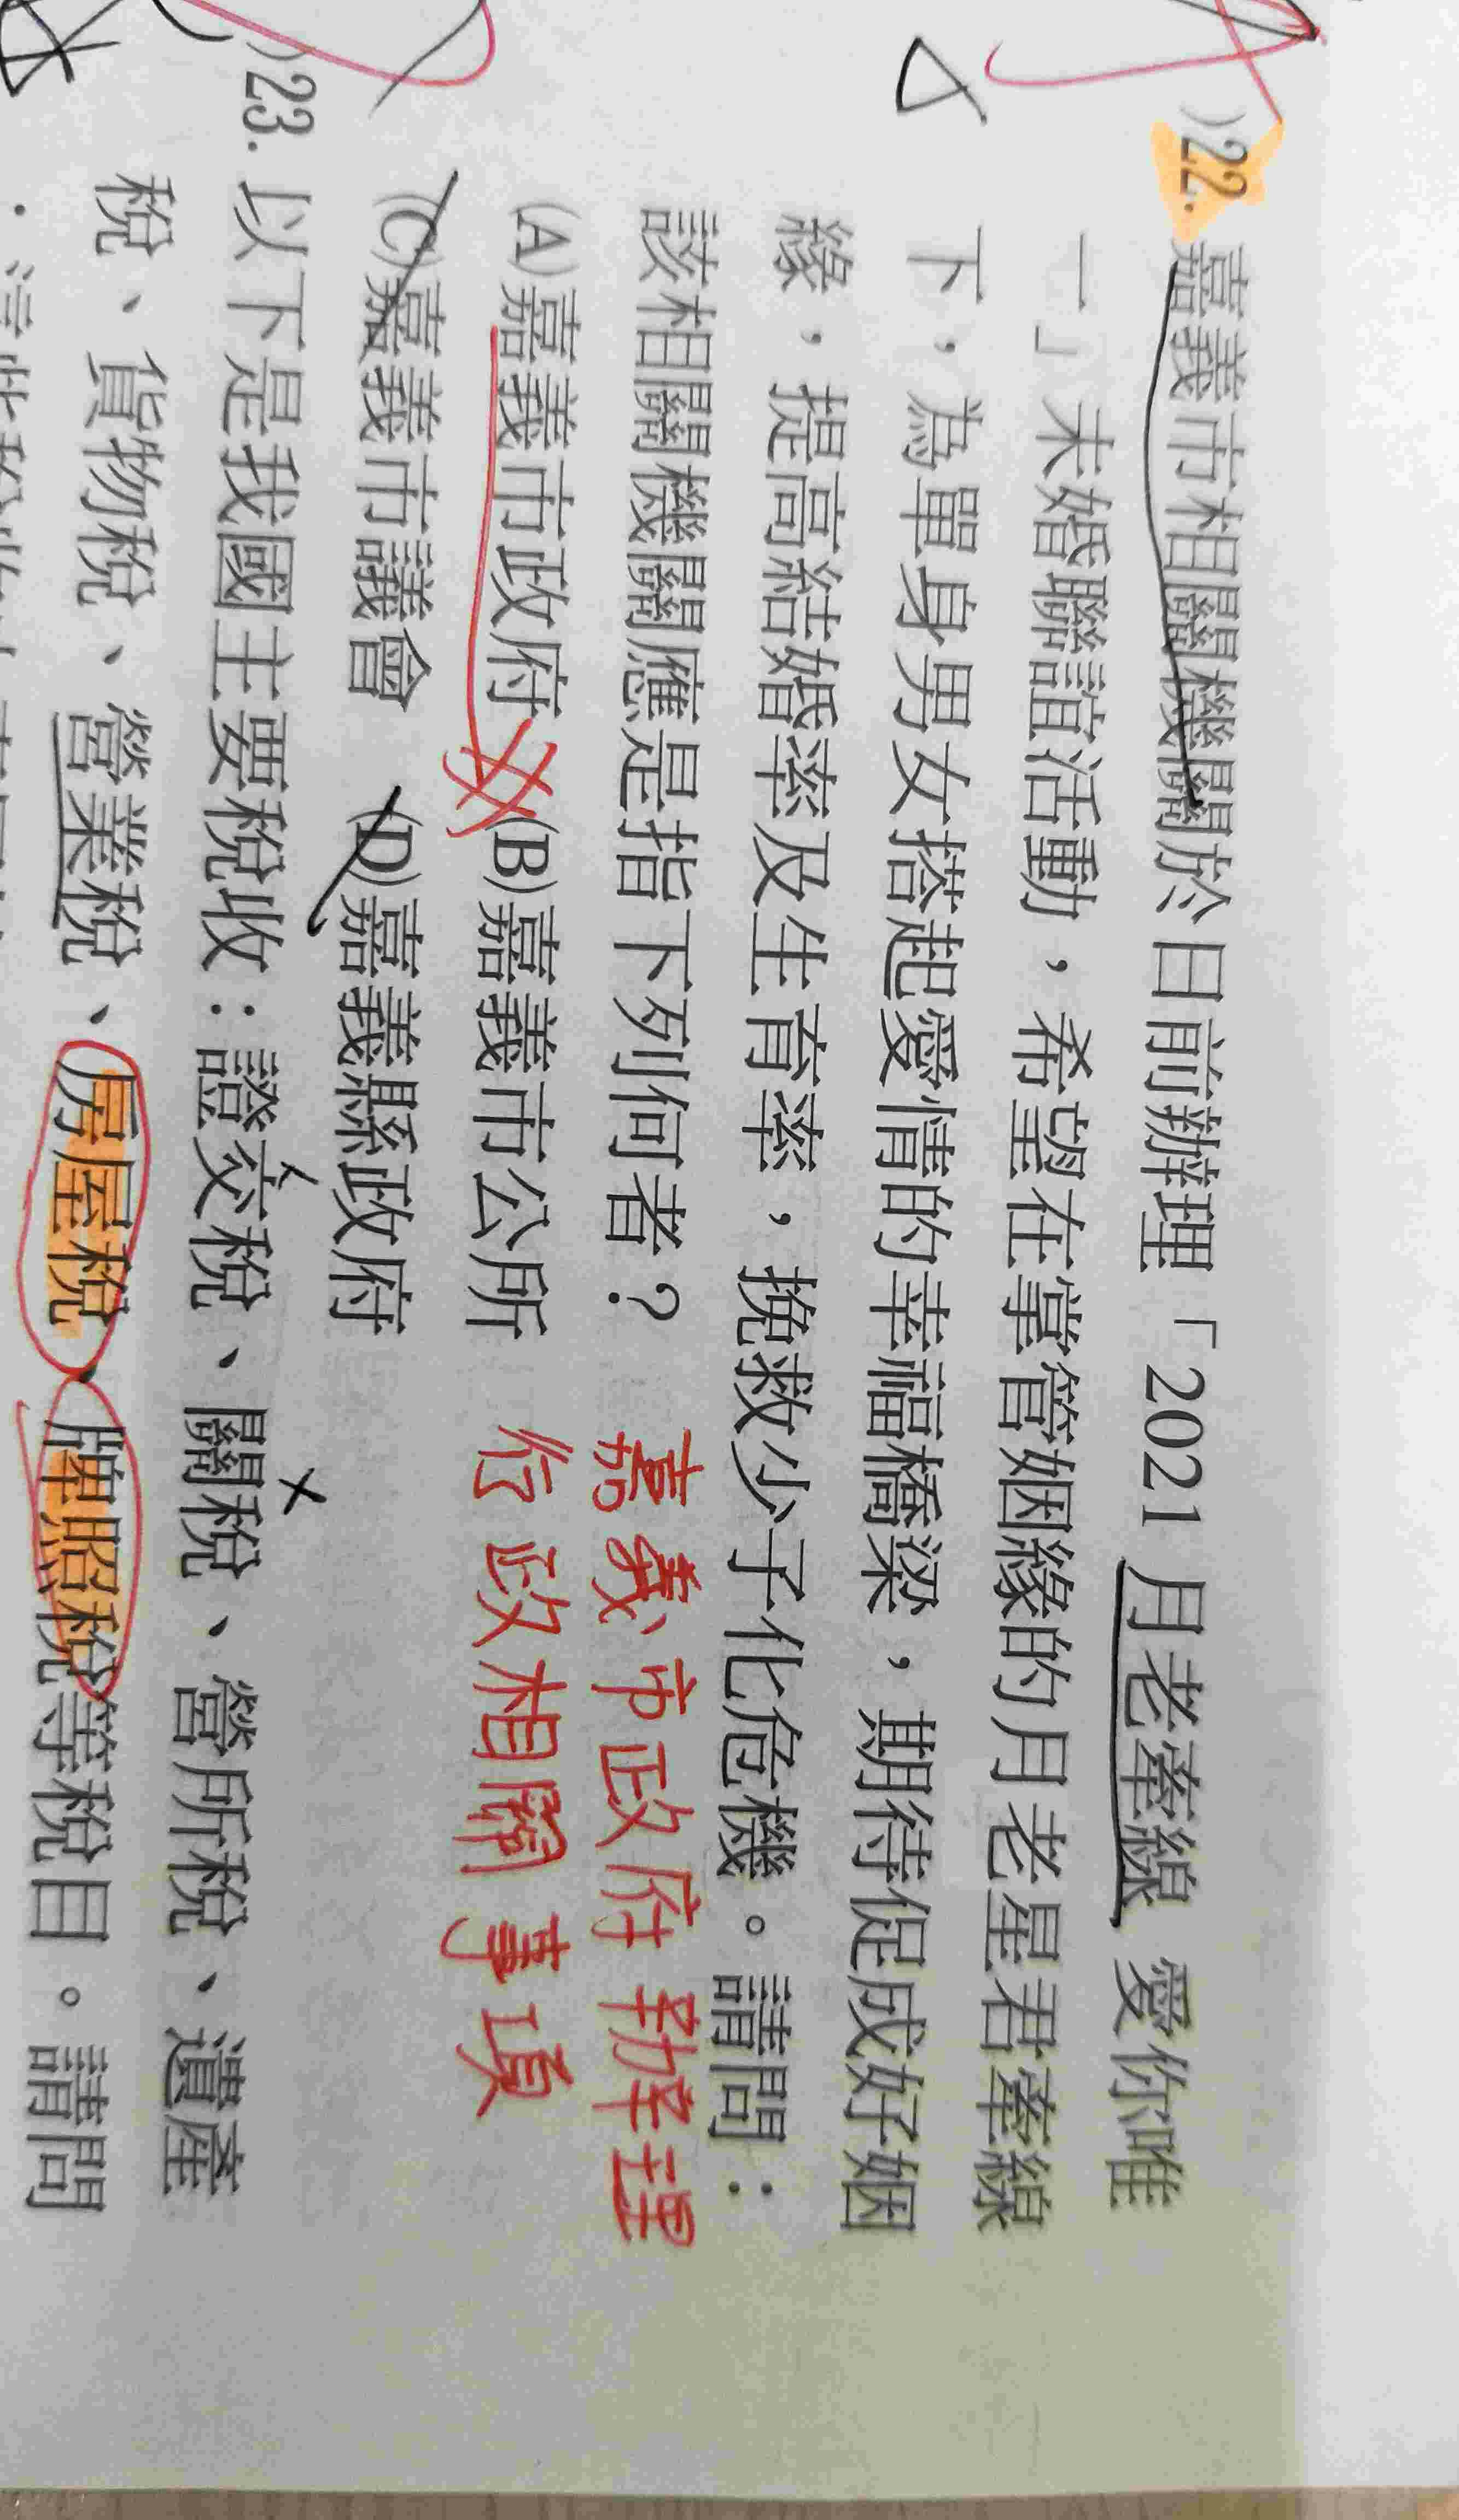 )22. 嘉義市相關機關於日前辦理「2021 月老牽線 愛你唯
一」未婚聯誼活動，希望在掌管姻緣的月老星君牽線
下，為單身男女搭起愛情的幸福橋梁，期待促成好姻
緣，提高結婚率及生育率，挽救少子化危機。請問：
該相關機關應是指下列何者？
(A)嘉義市政府 (B)嘉義市公所
(C)嘉義市議會 (D)嘉義縣政府
嘉義市政府 辦理
行政相關事項
)23. 以下是我國主要稅收：證交稅、關稅、營所稅、遺產
稅、貨物稅、營業稅、房屋稅、牌照稅等稅目。請問